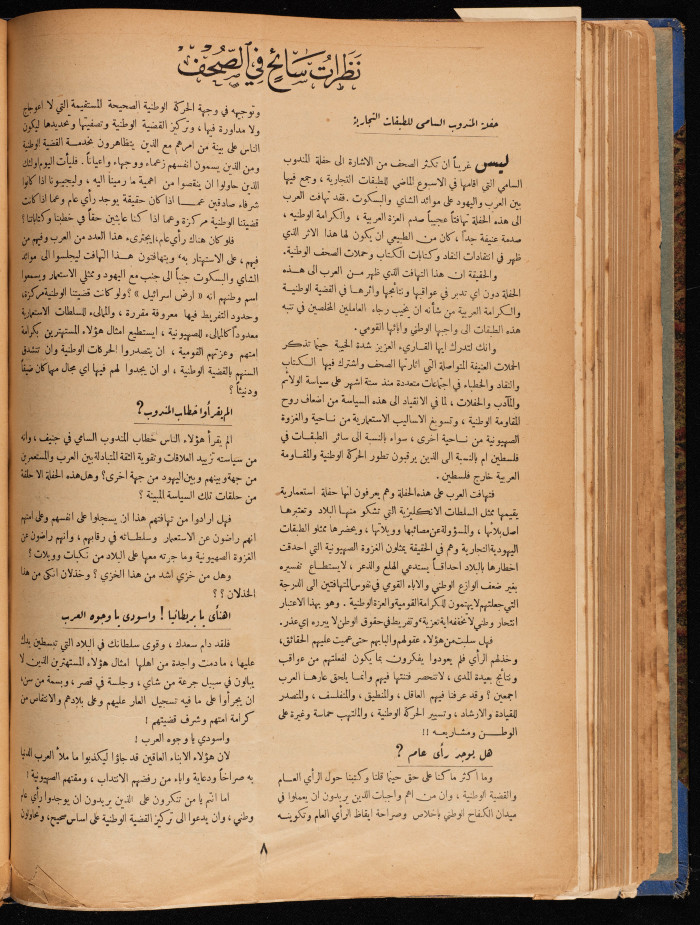 نظرات سائح في الصحف
حفلة المندوب السامى للطبقات التجارية
ليس غريباً ان تكثر الصحف من الاشارة الى حفلة المندوب
السامي التي اقامها في الاسبوع الماضي للطبقات التجارية ، وجمع فيها
بين العرب واليهود على موائد الشاي والبسكوت . فقد تهافت العرب
الى هذه الحفلة تهافتاً عجيباً صدم العزة العربية ، والكرامة الوطنيه ،
صدمة عنيفة جداً ، كان من الطبيعي ان يكون لها هذا الاثر الذي
ظهر في انتقادات النقاد وكتابات الكتاب وحملات الصحف الوطنية .
والحقيقة ان هذا التهافت الذي ظهر من العرب الى هذه
الحفلة دون اي تدبر في عواقبها ونتائجها واثرها في القضية الوطنية
والكرامة العربية من شأنه ان يخيب رجاء العاملين المخلصين في تنبه
هذه الطبقات الى واجبها الوطني وابائها القومي .
وانك لتدرك ايها القارىء العزيز شدة الخيبة حينما تذكر
الحملات العنيفة المتواصلة التي اثارتها الصحف واشترك فيها الكتاب
والنقاد والخطباء في اجتماعات متعددة منذ ستة اشهر على سياسة الولائم
والمآدب والحفلات ، لما في الانقياد الى هذه السياسة من اضعاف روح
المقاومة الوطنية ، وتسويغ الاساليب الاستعمارية من ناحية والغزوة
الصهيونية من ناحية اخرى ، سواء بالنسبة الى سائر الطبقات في
فلسطين ام بالنسبة الى الذين يرقبون تطور الحركة الوطنية والمقاومة
العربية خارج فلسطين .
فتهافت العرب على هذه الحفلة وهم يعرفون انها حفلة استعمارية
يقيمها ممثل السلطات الانكليزية التي تشكو منها البلاد وتعتبرها
اصل بلائها ، والمسؤولة عن مصائبها وويلاتها ، ويحضرها ممثلو الطبقات
اليهودية التجارية وهم في الحقيقة يمثلون الغزوة الصهيونية التي احدقت
اخطارها بالبلاد احداقاً يستدعي الهلع والذعر ، لا يستطاع تفسيره
بغير ضعف الوازع الوطني والاباء القومي في نفوس المتهافتين الى الدرجة
التي جعلتهم لا يهتمون للكرامة القومية والعزة الوطنية . وهو بهذا الاعتبار
انتحار وطني لا تخففه اية تعزية وتفريط في حقوق الوطن لا يبرره اي عذر .
فهل سلبت من هؤلاء عقولهم والبابهم حتى عميت عليهم الحقائق ،
وخذلهم الرأي فلم يعودوا يفكرون بما يكون لفعلتهم من عواقب
ونتائج بعيدة المدى ، لا تنحصر فتنتها فيهم وانما يلحق عارها العرب
اجمعين ؟ وقد عرفنا فيهم العاقل ، والمنطيق ، والمتفلسف ، والمتصدر
للقيادة والارشاد ، وتسيير الحركة الوطنية ، والملتهب حماسة وغيرة على
الوطـــن ومشاريعــه !!
هل يوجد رأى عام ؟
وما اكثر ما كنا على حق حينما قلنا وكتبنا حول الرأي العام
والقضية الوطنية ، وان من اهم واجبات الذين يريدون ان يعملوا في
ميدان الكفاح الوطني باخلاص وصراحة ايقاظ الرأي العام وتكوينه
وتوجيهه في وجهة الحركة الوطنية الصحيحة المستقيمة التي لا اعوجاج
ولا مداورة فيها ، وتركيز القضية الوطنية وتصفيتها وتحديدها ليكون
الناس على بينة من امرهم مع الذين يتظاهرون بخدمة القضية الوطنية
ومن الذين يسمون انفسهم زعماء ووجهاء واعياناً . فليأت اليوم اولئك
الذين حاولوا ان ينقصوا من اهمية ما رمينا اليه ، وليجيبونا اذا كانوا
شرفاء صادقين عمـا اذا كان حقيقة يوجد رأي عام وعما اذا كانت
قضيتنا الوطنية مركزة وعما اذا كنا عابثين حقاً في خطبنا وكتاباتنا ؟
فلو كان هناك رأي عام ، ايجترىء هذا العدد من العرب وفيهم من
فيهم ، على الاستهتار به ، ويتهافتون هـذا التهافت ليجلسوا الى موائد
الشاي والبسكوت جنباً الى جنب مع اليهود وممثلي الاستعمار ويسمعوا
اسم وطنهم انه « ارض اسرائيل » ؟ ولو كانت قضيتنا الوطنية مركزة ،
وحدود التفريط فيها معروفة مقررة ، والممالىء للسلطات الاستعمارية
معدوداً كالممالىء للصهيونية ، ايستطيع امثال هؤلاء المستهترين بكرامة
امتهم وعزتهم القومية ، ان يتصدروا الحركات الوطنية وان تتشدق
السنتهم بالقضية الوطنية ، او ان يجدوا لهم فيها اي مجال مهما كان ضيقاً
ودنيئاً ؟
الم يقرأوا خطاب المندوب ؟
الم يقرأ هؤلاء الناس خطاب المندوب السامي في جنيف ، وانه
من سياسته تزييد العلاقات وتقوية الثقة المتبادلة بين العرب والمستعمرين
من جهة وبينهم وبين اليهود من جهة اخرى ؟ وهل هذه الحفلة الا حلقة
من حلقات تلك السياسة المبينة ؟
فهل ارادوا من تهافتهم هذا ان يسجلوا على انفسهم وعلى امتهم
انهم راضون عن الاستعمار وسلطـانه في رقابهم ، وانهم راضون عن
الغزوة الصهيونية وما جرته معها على البلاد من نكبات وويلات !
وهل من خزي اشد من هذا الخزي ؟ وخذلان انكى من هذا
الخذلان ؟ ؟
اهنأى يا بريطانيا ! واسودى يا وجوه العرب
فلقد دام سعدك ، وقوى سلطانك في البلاد التي تبسطين يدك
عليها ، ما دمت واجدة من اهلها امثال هؤلاء المستهترين الذين لا
يبالون في سبيل جرعة من شاي ، وجلسة في قصر ، وبسمة من سن ،
ان يجرأوا على ما فيه تسجيل العار عليهم وعلى بلادهم والانتقاص من
كرامة امتهم وشرف قضيتهم !
واسودي يا وجوه العرب !
لان هؤلاء الابناء العاقين قد جاؤا ليكذبوا ما ملأ العرب الدنيا
به صراخاً ودعاية واباء من رفضهم الانتداب ، ومقتهم الصهيونية !
اما انتم يا من تنكرون على الذين يريدون ان يوجدوا رأي عام
وطني ، وان يدعوا الى تركيز القضية الوطنية على اساس صحيح ، وتحاولون
٨